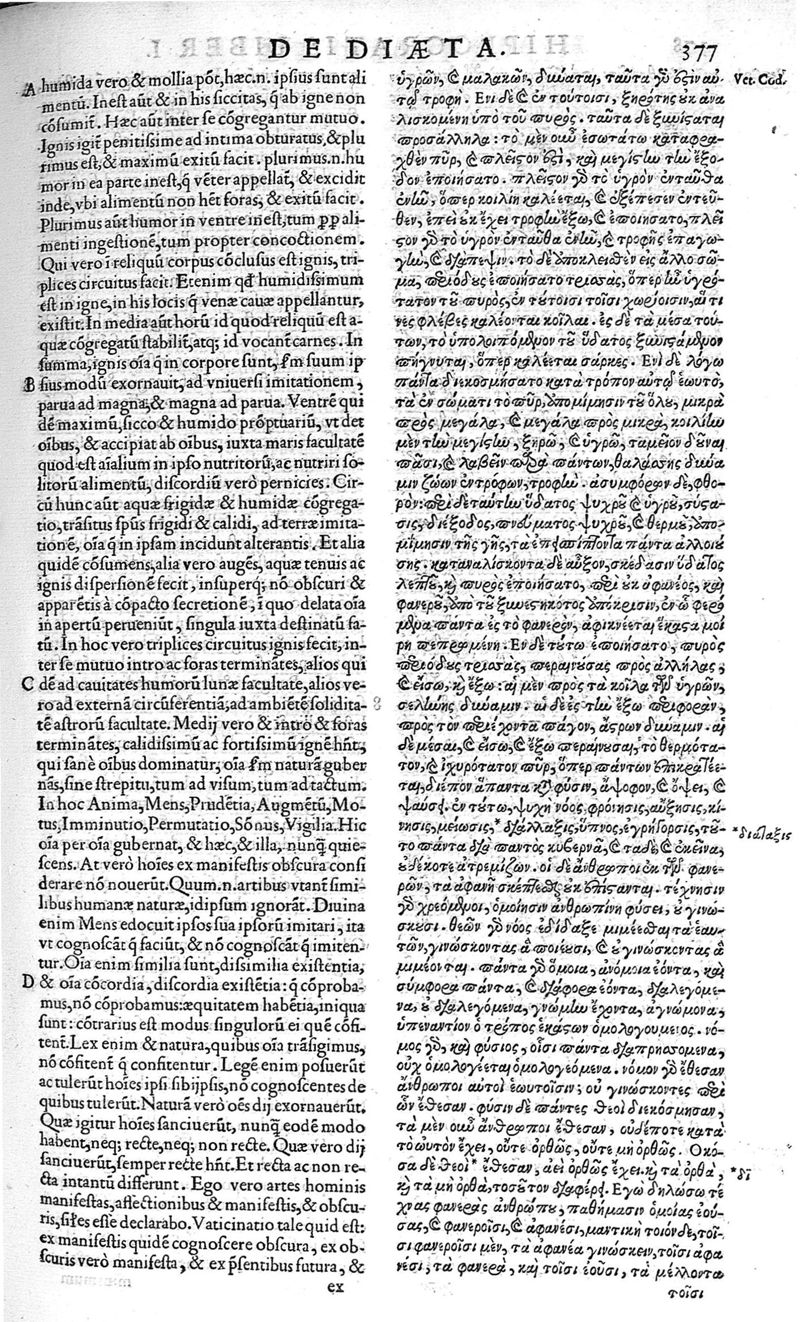 DE DIÆTA.
377
A humida vero & mollia põt, hæc.n. ipsius sunt ali
mentũ. Inest aũt & in his siccitas, q̃ ab igne non
cõsumit̃. Hæc aũt inter se cõgregantur mutuo.
Ignis igit̃ penitissime ad intima obturatus, & plu
rimus est, & maximũ exitũ facit. plurimus.n. hu
mor in ea parte inest, q̃ vẽter appellat̃, & excidit
inde, vbi alimentũ non hẽt foras, & exitũ facit.
Plurimus aũt humor in ventre inest, tum ꝓp̃ ali-
menti ingestionẽ, tum propter concoctionem.
Qui vero ĩ reliquũ corpus cõclusus est ignis, tri-
plices circuitus facit. Etenim qđ humidissimum
est in igne, in his locis q̃ venæ cauæ appellantur,
existit. In media aũt horũ id quod reliquũ est a-
quæ cõgregatũ stabilit̃, atq; id vocant carnes. In
summa, ignis oĩa q̃ in corpore sunt, ſm suum ip
B sius modũ exornauit, ad vniuersi imitationem,
parua ad magna, & magna ad parua. Ventrẽ qui
dẽ maximũ, sicco & humido prõptuariũ, vt det
oĩbus, & accipiat ab oĩbus, iuxta maris facultatẽ
quod est aĩalium in ipso nutritorũ, ac nutriri so-
litorũ alimentũ, discordiũ verò pernicies. Cir-
cũ hunc aũt aquæ frigidæ & humidæ cõgrega-
tio, trãsitus sp̃us frigidi & calidi, ad terræ imita-
tionẽ, oĩa q̃ in ipsam incidunt alterantis. Et alia
quidẽ cõsumens, alia vero augẽs, aquæ tenuis ac
ignis dispersionẽ fecit, insuperq; nõ obscuri &
apparẽtis à cõpacto secretionẽ, ĩ quo delata oĩa
in apertũ perueniũt, singula iuxta destinatũ fa-
tũ. In hoc vero triplices circuitus ignis fecit, in-
ter se mutuo intro ac foras terminãtes, alios qui
C dẽ ad cauitates humorũ lunæ facultate, alios ve-
ro ad externã circũferentiã, ad ambiẽtẽ solidita-
tẽ astrorũ facultate. Medij vero & intro & foras
terminãtes, calidissimũ ac fortissimũ ignẽ hñt,
qui sanè oĩbus dominatur, oĩa ſm naturã guber
nãs, sine strepitu, tum ad visum, tum ad tactum.
In hoc Anima, Mens, Prudẽtia, Augmẽtũ, Mo-
tus, Imminutio, Permutatio, Sõnus, Vigilia. Hic
oĩa per oĩa gubernat, & hæc, & illa, nunq̃ quie-
scens. At verò hoĩes ex manifestis obscura consi
derare nõ nouerũt. Quum.n. artibus vtant̃ simi-
libus humanæ naturæ, idipsum ignorãt. Diuina
enim Mens edocuit ipsos sua ipsorũ imitari, ita
vt cognoscãt q̃ faciũt, & nõ cognoscãt q̃ imiten-
tur. Oĩa enim similia sunt, dissimilia existentia,
D & oĩa cõcordia, discordia existẽtia: q̃ cõproba-
mus, nõ cõprobamus: æquitatem habẽtia, iniqua
sunt: cõtrarius est modus singulorũ ei quẽ cõfi-
tent̃. Lex enim & natura, quibus oĩa trãsigimus,
nõ cõfitent̃ q̃ confitentur. Legẽ enim posuerũt
ac tulerũt hoĩes ipsi sibijpsis, nõ cognoscentes de
quibus tulerũt. Naturã verò oẽs dij exornauerũt.
Quæ igitur hoĩes sanciuerũt, nunq̃ eodẽ modo
habent, neq; recte, neq; non recte. Quæ vero dij
sanciuerũt, semper recte hñt. Et recta ac non re-
cta intantũ differunt. Ego vero artes hominis
manifestas, affectionibus & manifestis, & obscu-
ris, sil̃es esse declarabo. Vaticinatio tale quid est:
ex manifestis quidẽ cognoscere obscura, ex ob-
scuris verò manifesta, & ex p̃sentibus futura, &
ex
ὑγρῶν, καὶ μαλακῶν, δύναται, ταῦτα γὰρ ἐστὶν αὐ-
τῷ τροφή. Ενι δὲ καὶ ἐν τούτοισι, ξηρότης οὐκ ἀνα
λισκομένη ὑπὸ τοῦ πυρός. ταῦτα δὲ ξυνίσταται
πρὸς ἄλληλα: τὸ μὲν οὖν ἐσωτάτω καταφρα-
χθὲν πῦρ, καὶ πλεῖστον ἐστι, καὶ μεγίστην τὴν ἔξο-
δον ἐποιήσατο. πλεῖστον γὰρ τὸ ὑγρὸν ἐνταῦθα
ἐνῆν, ὅπερ κοιλίη καλέεται, καὶ ἐξέπεσεν ἐντεῦ-
θεν, ἐπεὶ οὐκ ἔχει τροφὴν ἔξω, καὶ ἐποιήσατο, πλεῖ
στον γὰρ τὸ ὑγρὸν ἐνταῦθα ἐνῆν, καὶ τροφῆς ἐπαγω-
γὴν, καὶ διάπεψιν. τὸ δὲ ἀποκλεισθὲν εἰς ἄλλο σῶ-
μα, περιόδους ἐποιήσατο τρισσὰς, ὅπερ ἦν ὑγρό-
τατον τοῦ πυρὸς, ἐν τούτοισι τοῖσι χωρίοισιν, αἵ τι
νες φλέβες καλέονται κοῖλαι. ἐς δὲ τὰ μέσα τού-
των, τὸ ὑπολοιπόμενον τοῦ ὕδατος ξυνιστάμενον
πήγνυται, ὅπερ καλέεται σάρκες. Ενὶ δὲ λόγῳ
πάντα διεκοσμήσατο κατὰ τρόπον αὐτὸ ἑωυτῷ,
τὰ ἐν σώματι τὸ πῦρ, ἀπομίμησιν τοῦ ὅλου, μικρὰ
πρὸς μεγάλα, καὶ μεγάλα πρὸς μικρὰ, κοιλίην
μὲν τὴν μεγίστην, ξηρῷ, καὶ ὑγρῷ, ταμεῖον δοῦναι
πᾶσι, καὶ λαβεῖν παρὰ πάντων, θαλάσσης δύνα
μιν ζώων ἐντρόφων, τροφὴν. ἀσυμφόρων δὲ, φθο-
ρὸν: περὶ δὲ ταύτην ὕδατος ψυχροῦ καὶ ὑγροῦ, σύστα-
σις, διέξοδος, πνεύματος ψυχροῦ, καὶ θερμοῦ, ἀπο-
μίμησιν τῆς γῆς, τὰ ἐπεισπίπτοντα πάντα ἀλλοιού
σης. καταναλίσκοντα δὲ αὖξον, σκέδασιν ὕδατος
λεπτοῦ, καὶ πυρὸς ἐποιήσατο, περὶ οὐκ ἀφανέος, καὶ
φανεροῦ, ἀπὸ τοῦ ξυνεστηκότος ἀπόκρισιν, ἐν ᾧ φερό
μενα πάντα ἐς τὸ φανερὸν, ἀφικνέεται ἕκαστα μοί
ρῃ πεπρωμένῃ. Εν δὲ τούτῳ ἐποιήσατο, πυρὸς
περιόδους τρισσὰς, περαινούσας πρὸς ἀλλήλας,
καὶ εἴσω, καὶ ἔξω: αἱ μὲν πρὸς τὰ κοῖλα τῶν ὑγρῶν,
σελήνης δύναμιν. αἱ δὲ ἐς τὴν ἔξω περιφορὰν,
πρὸς τὸν περιέχοντα πάγον, ἄστρων δύναμιν. αἱ
δὲ μέσαι, καὶ εἴσω, καὶ ἔξω περαίνουσαι, τὸ θερμότα-
τον, καὶ ἰσχυρότατον πῦρ, ὅπερ πάντων ἐπικρατέε-
ται, διέπον ἅπαντα κατὰ φύσιν, ἄψοφον, καὶ ὄψει, καὶ
ψαύσει. ἐν τούτῳ, ψυχὴ νόος, φρόνησις, αὔξησις, κί-
νησις, μείωσις, *διάλλαξις, ὕπνος, ἐγρήγορσις, τοῦ-
το πάντα διὰ παντὸς κυβερνᾷ, καὶ τάδε καὶ ἐκεῖνα,
οὐδέκοτε ἀτρεμίζον. οἱ δὲ ἄνθρωποι ἐκ τῶν φανε-
ρῶν, τὰ ἀφανῆ σκέπτεσθαι οὐκ ἐπίστανται. τέχνησιν
γὰρ χρεόμενοι, ὁμοίησιν ἀνθρωπίνῃ φύσει, οὐ γινώ-
σκουσι. θεῶν γὰρ νόος ἐδίδαξε μιμέεσθαι τὰ ἑαυ-
τῶν, γινώσκοντας ἃ ποιέουσι, καὶ οὐ γινώσκοντας ἃ
μιμέονται. πάντα γὰρ ὅμοια, ἀνόμοια ἐόντα, καὶ
σύμφορα πάντα, καὶ διάφορα ἐόντα, διαλεγόμε-
να, οὐ διαλεγόμενα, γνώμην ἔχοντα, ἀγνώμονα,
ὑπεναντίον ὁ τρόπος ἑκάστων ὁμολογουμένος. νό-
μος γὰρ, καὶ φύσιος, οἷσι πάντα διαπρησσόμενα,
οὐχ ὁμολογέεται ὁμολογεόμενα. νόμον γὰρ ἔθεσαν
ἄνθρωποι αὐτοὶ ἑωυτοῖσιν; οὐ γινώσκοντες περὶ
ὧν ἔθεσαν. φύσιν δὲ πάντες θεοὶ διεκόσμησαν,
τὰ μὲν οὖν ἄνθρωποι ἔθεσαν, οὐδέποτε κατὰ
τὸ ωὐτὸν ἔχει, οὔτε ὀρθῶς, οὔτε μὴ ὀρθῶς. Οκό-
σα δὲ θεοὶ * ἔθεσαν, ἀεὶ ὀρθῶς ἔχει. καὶ τὰ ὀρθὰ,
καὶ τὰ μὴ ὀρθὰ, τοσοῦτον διαφέρει. Εγὼ δηλώσω τέ
χνας φανερὰς ἀνθρώπου, παθήμασιν ὁμοίας ἐού-
σας, καὶ φανεροῖσι, καὶ ἀφανέσι, μαντικὴ τοιόνδε, τοῖ-
σι φανεροῖσι μὲν, τὰ ἀφανέα γινώσκειν, τοῖσι ἀφα
νέσι, τὰ φανερὰ, καὶ τοῖσι ἐοῦσι, τὰ μέλλοντα
τοῖσι
Vet. Cod.
*διάταξις
*δὶ